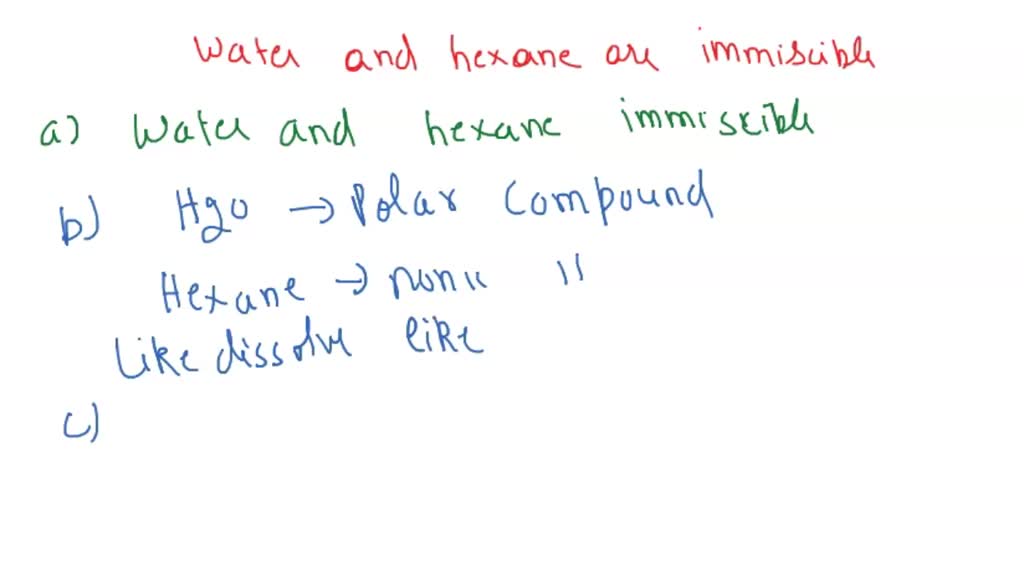 Water and hexane are immiscible
a) Water and hexane immiscible
b) H2O → Polar Compound
Hexane → non〃 〃
Like dissolve like
c)